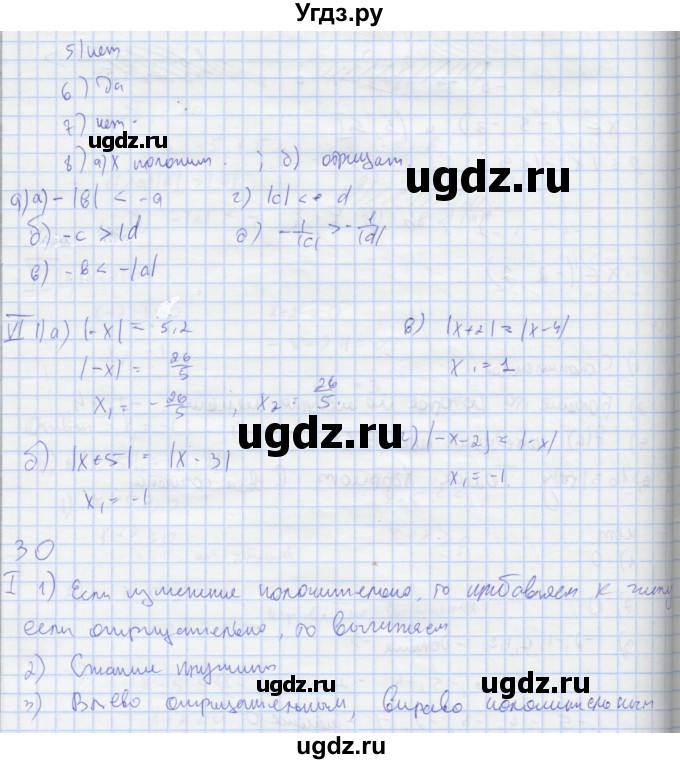 Угдз.ру
5) нет
6) Да
7) нет.
8) а) X положит. ; б) отрицат.
ugdz.ru
ugdz.ru
9) а) -|в| < -а г) |c| < d
б) -c > |d д) -1/|c| > -1/|d|
в) -в < -|a|
VI 1) а) |-x| = 5,2 в) |x+2| = |x-4|
ugdz.ru
|-x| = 26/5 x₁ = 1
x₁ = -26/5, x₂ = 26/5.
ugdz.ru
б) |x+5| = |x-3| г) |-x-2| = |-x|
x₁ = -1 x₁ = -1
ugdz.ru
30
I 1) Если изменение положительно, то прибавляем к числу
ugdz.ru
если отрицательно, то вычитаем
2) Сжатие пружины
ugdz.ru
ugdz.ru
3) Влево отрицательным, вправо положительным
ugdz.ru